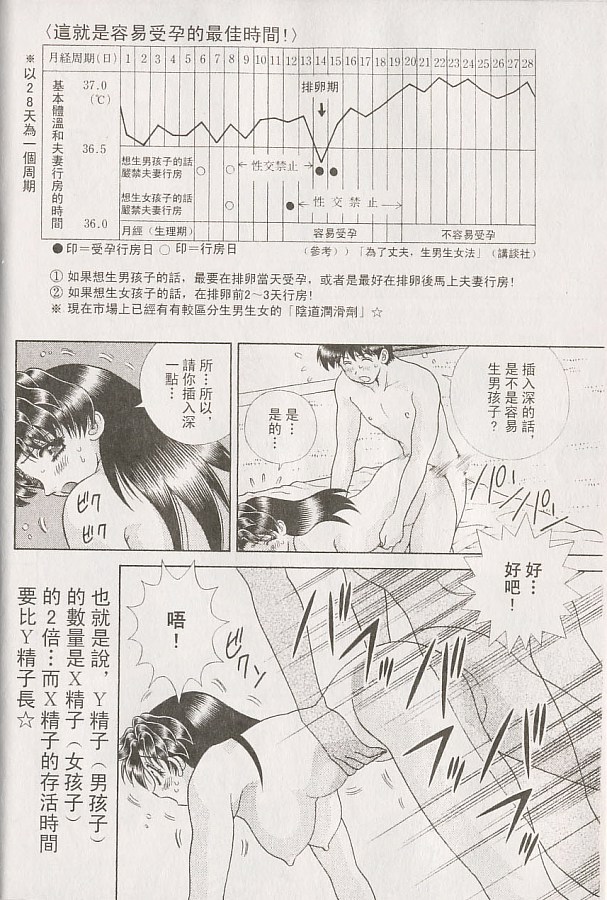 〈這就是容易受孕的最佳時間！〉
※以28天為一個周期
月経周期(日) 1 2 3 4 5 6 7 8 9 10 11 12 13 14 15 16 17 18 19 20 21 22 23 24 25 26 27 28
基本體溫和夫妻行房的時間
37.0
(℃)
排卵期
36.5
想生男孩子的話
嚴禁夫妻行房
性交禁止
想生女孩子的話
嚴禁夫妻行房
性交禁止
36.0
月經（生理期）
容易受孕
不容易受孕
●印＝受孕行房日 ○印＝行房日
(參考)）「為了丈夫，生男生女法」（講談社）
① 如果想生男孩子的話，最要在排卵當天受孕，或者是最好在排卵後馬上夫妻行房！
② 如果想生女孩子的話，在排卵前2～3天行房！
※ 現在市場上已經有有較區分生男生女的「陰道潤滑劑」☆
插入深的話，
是不是容易
生男孩子？
是…
是的…
パン
パン
所…所以，
請你插入深
一點…
ビク
ビク
好…
好吧！
唔！
ビク
ズッ
パン
パン
也就是說，Y精子（男孩子）
的數量是X精子（女孩子）
的2倍…而X精子的存活時間
要比Y精子長☆